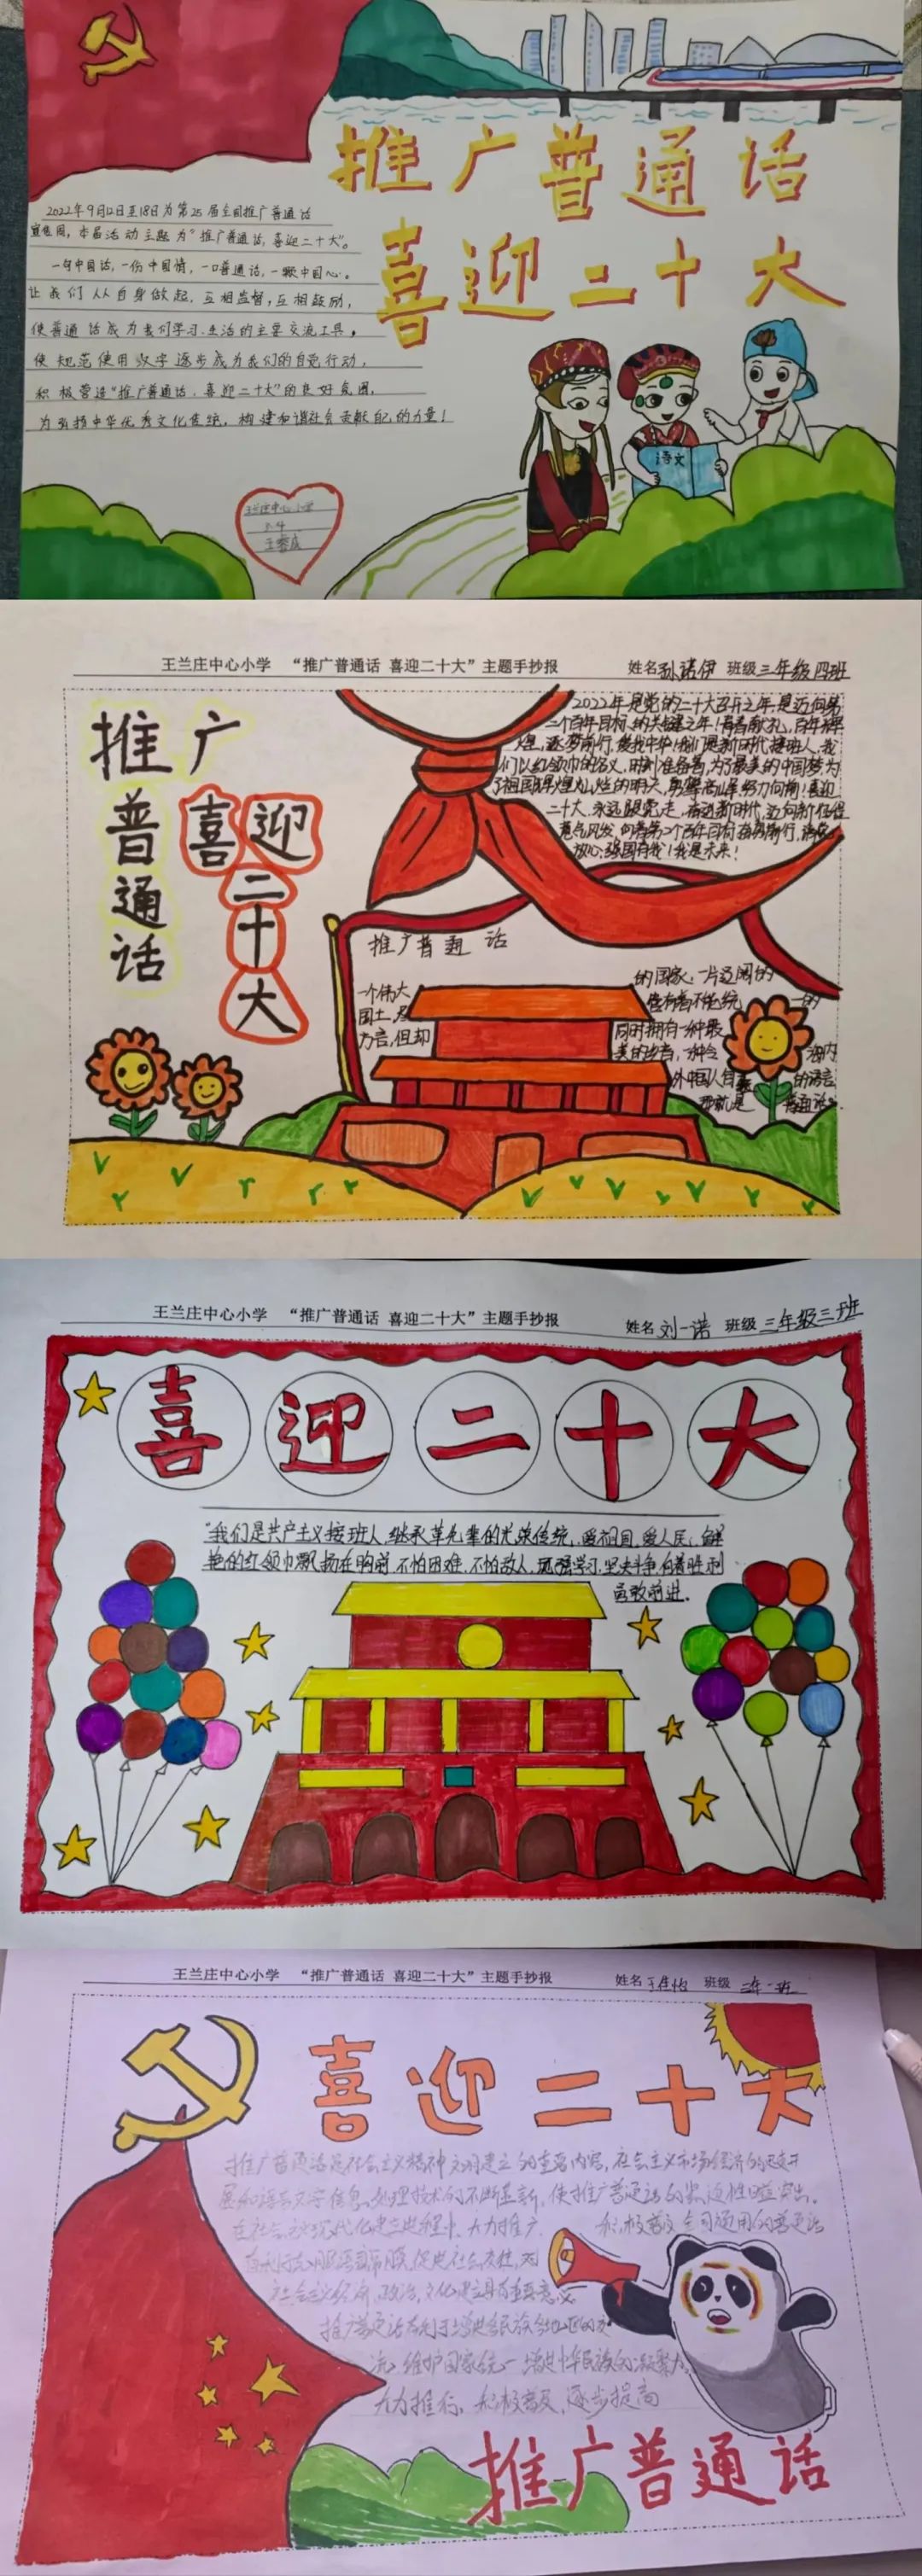 推广普通话
喜迎二十大
2022年9月12日至18日为第25届全国推广普通话
宣传周，本届活动主题为“推广普通话，喜迎二十大”。
一句中国话，一份中国情，一口普通话，一颗中国心。
让我们从自身做起，互相监督，互相鼓励，
使普通话成为我们学习、生活的主要交流工具，
使规范使用汉字逐步成为我们的自觉行动，
积极营造“推广普通话，喜迎二十大”的良好氛围，
为弘扬中华优秀文化传统，构建和谐社会贡献自己的力量！
语文
王兰庄中心小学
王兰庄中心小学 “推广普通话 喜迎二十大”主题手抄报 姓名 孙诺伊 班级 三年级四班
推广
普通话
喜迎
二十大
2022年是党的二十大召开之年，是迈向第
二个百年目标的关键之年！青春献礼，百年辉
煌，逐梦前行，爱我中华！我们是新时代接班人，我
们以红领巾的名义，时刻准备着，为了最美的中国梦，为
了祖国辉煌灿烂的明天，勇攀高峰努力向前！喜迎
二十大，永远跟党走，奋进新时代，迈向新征程
意气风发，向着第二个百年目标奋勇前行，请党
放心，强国有我！我是未来！
推广普通话
一个伟大的国家，一片辽阔的
国土，尽管有着不能统一的
方言，但却同时拥有一种最
美的语音，一种令海内
外中国人自豪的语言
那就是普通话。
王兰庄中心小学 “推广普通话 喜迎二十大”主题手抄报 姓名 刘一诺 班级 三年级三班
喜迎二十大
“我们是共产主义接班人，继承革先辈的光荣传统，爱祖国，爱人民，鲜
艳的红领巾飘扬在胸前，不怕困难，不怕敌人，顽强学习，坚决斗争，向着胜利
勇敢前进。
王兰庄中心小学 “推广普通话 喜迎二十大”主题手抄报 姓名 班级
喜迎二十大
推广普通话是社会主义精神文明建立的重要内容，在社会主义市场经济的
展和语言文字信息处理技术的不断革新，使推广普通话的紧迫性日益突出。
在社会主义现代化建立进程中，大力推广，积极普及全国通用的普通话
社会主义经济，政治，文化建立具有重要意义
推广普通话有利于增进各民族各地区的交
流，维护国家统一，增进中华民族的凝聚力，
大力推行，积极普及，逐步提高
推广普通话